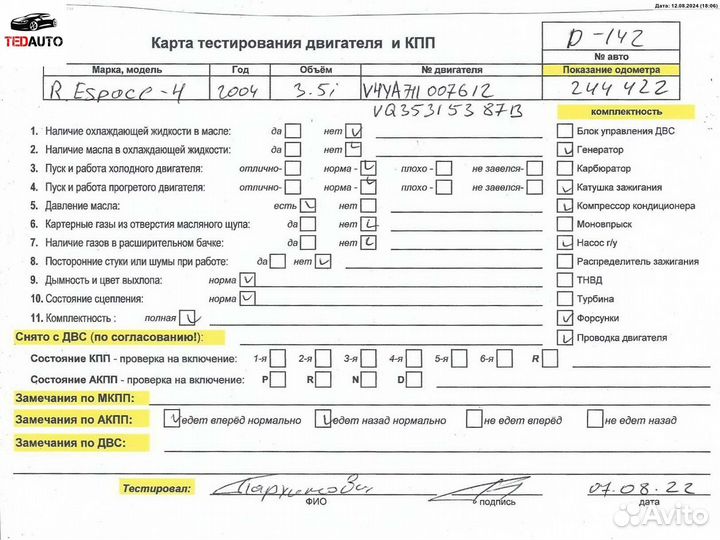 Дата: 12.08.2024 (18:06)
TEDAUTO
Карта тестирования двигателя и КПП
D-142
№ авто
Марка, модель Год Объём № двигателя Показание одометра
R. Espace-4 2004 3.5i V4YA711 007612 244 422
VQ353153 87B
комплектность
1. Наличие охлаждающей жидкости в масле: да нет Блок управления ДВС
2. Наличие масла в охлаждающей жидкости: да нет Генератор
3. Пуск и работа холодного двигателя: отлично- норма - плохо - не завелся- Карбюратор
4. Пуск и работа прогретого двигателя: отлично- норма - плохо - не завелся- Катушка зажигания
5. Давление масла: есть нет Компрессор кондиционера
6. Картерные газы из отверстия масляного щупа: да нет Моновпрыск
7. Наличие газов в расширительном бачке: да нет Насос г/у
8. Посторонние стуки или шумы при работе: да нет Распределитель зажигания
9. Дымность и цвет выхлопа: норма ТНВД
10. Состояние сцепления: норма Турбина
11. Комплектность : полная Форсунки
Снято с ДВС (по согласованию!): Проводка двигателя
Состояние КПП - проверка на включение: 1-я 2-я 3-я 4-я 5-я 6-я R
Состояние АКПП - проверка на включение: P R N D
Замечания по МКПП:
Замечания по АКПП: едет вперёд нормально едет назад нормально не едет вперёд не едет назад
Замечания по ДВС:
Тестировал: 07.08.22
ФИО подпись дата
Avito